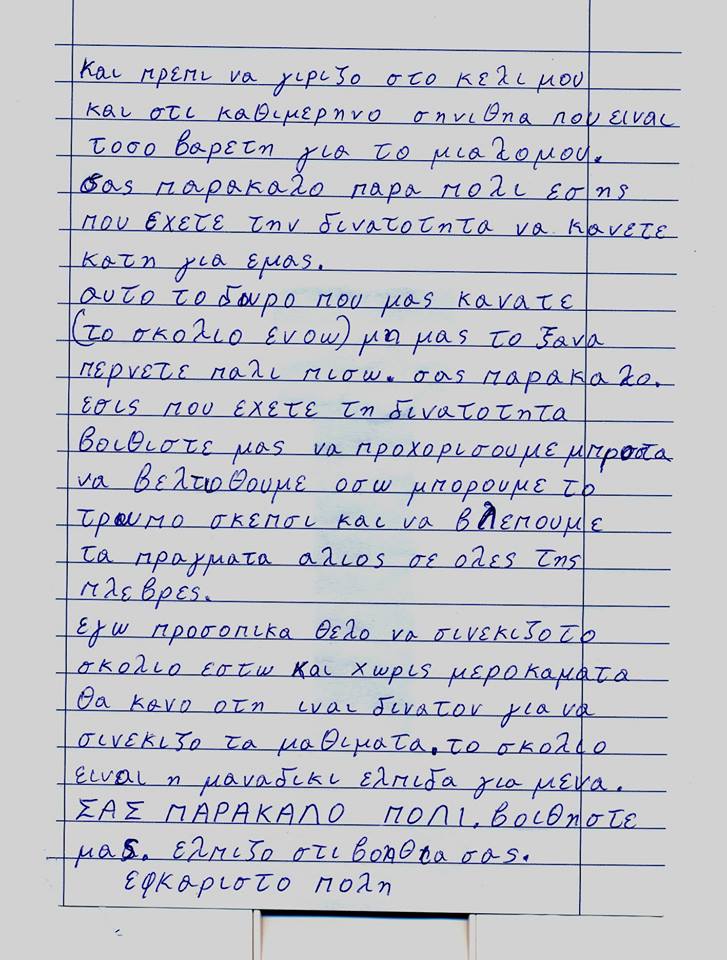 και πρεπι να γιριζο στο κελι μου
και στι καθιμερηνο σηνιθηα που ειναι
τοσο βαρετη για το μιαλομου.
σας παρακαλο παρα πολι εσης
που εχετε την δινατοτητα να κανετε
κατη για εμας.
αυτο το δωρο που μας κανατε
(το σκολιο ενοω) μη μας το ξανα
περνετε παλι πισω. σας παρακαλο.
εσις που εχετε τη δινατοτητα
βοιθιστε μας να προχορισουμε μπροστα
να βελτιοθουμε οσω μπορουμε το
τρωπο σκεπσι και να βλεπουμε
τα πραγματα αλιος σε ολες της
πλεβρες.
εγω προσοπικα θελο να σινεκιζο το
σκολιο εστω και χωρις μεροκαματα
θα κανο οτη ιναι δινατον για να
σινεκιζο τα μαθιματα. το σκολιο
ειναι η μαναδικι ελπιδα για μενα.
ΣΑΣ ΠΑΡΑΚΑΛΟ ΠΟΛΙ. βοιθηστε
μας. ελπιζο στι βοηθια σας.
εφκαριστο πολη